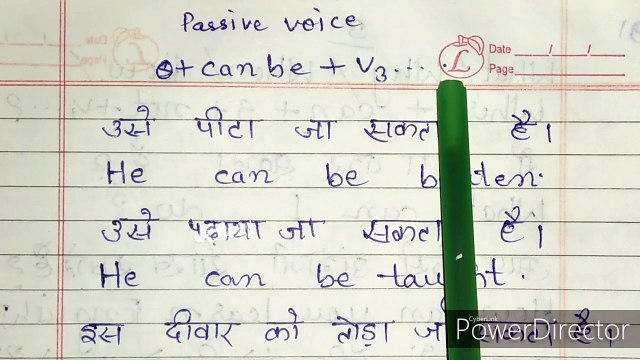 Passive voice
O+ can be + V3....
Date / /
Page
उसे पीटा जा सकता है।
He can be b ten.
उसे पढ़ाया जा सकता है।
He can be tau ht.
इस दीवार को तोड़ा है।
CyberLink
PowerDirector